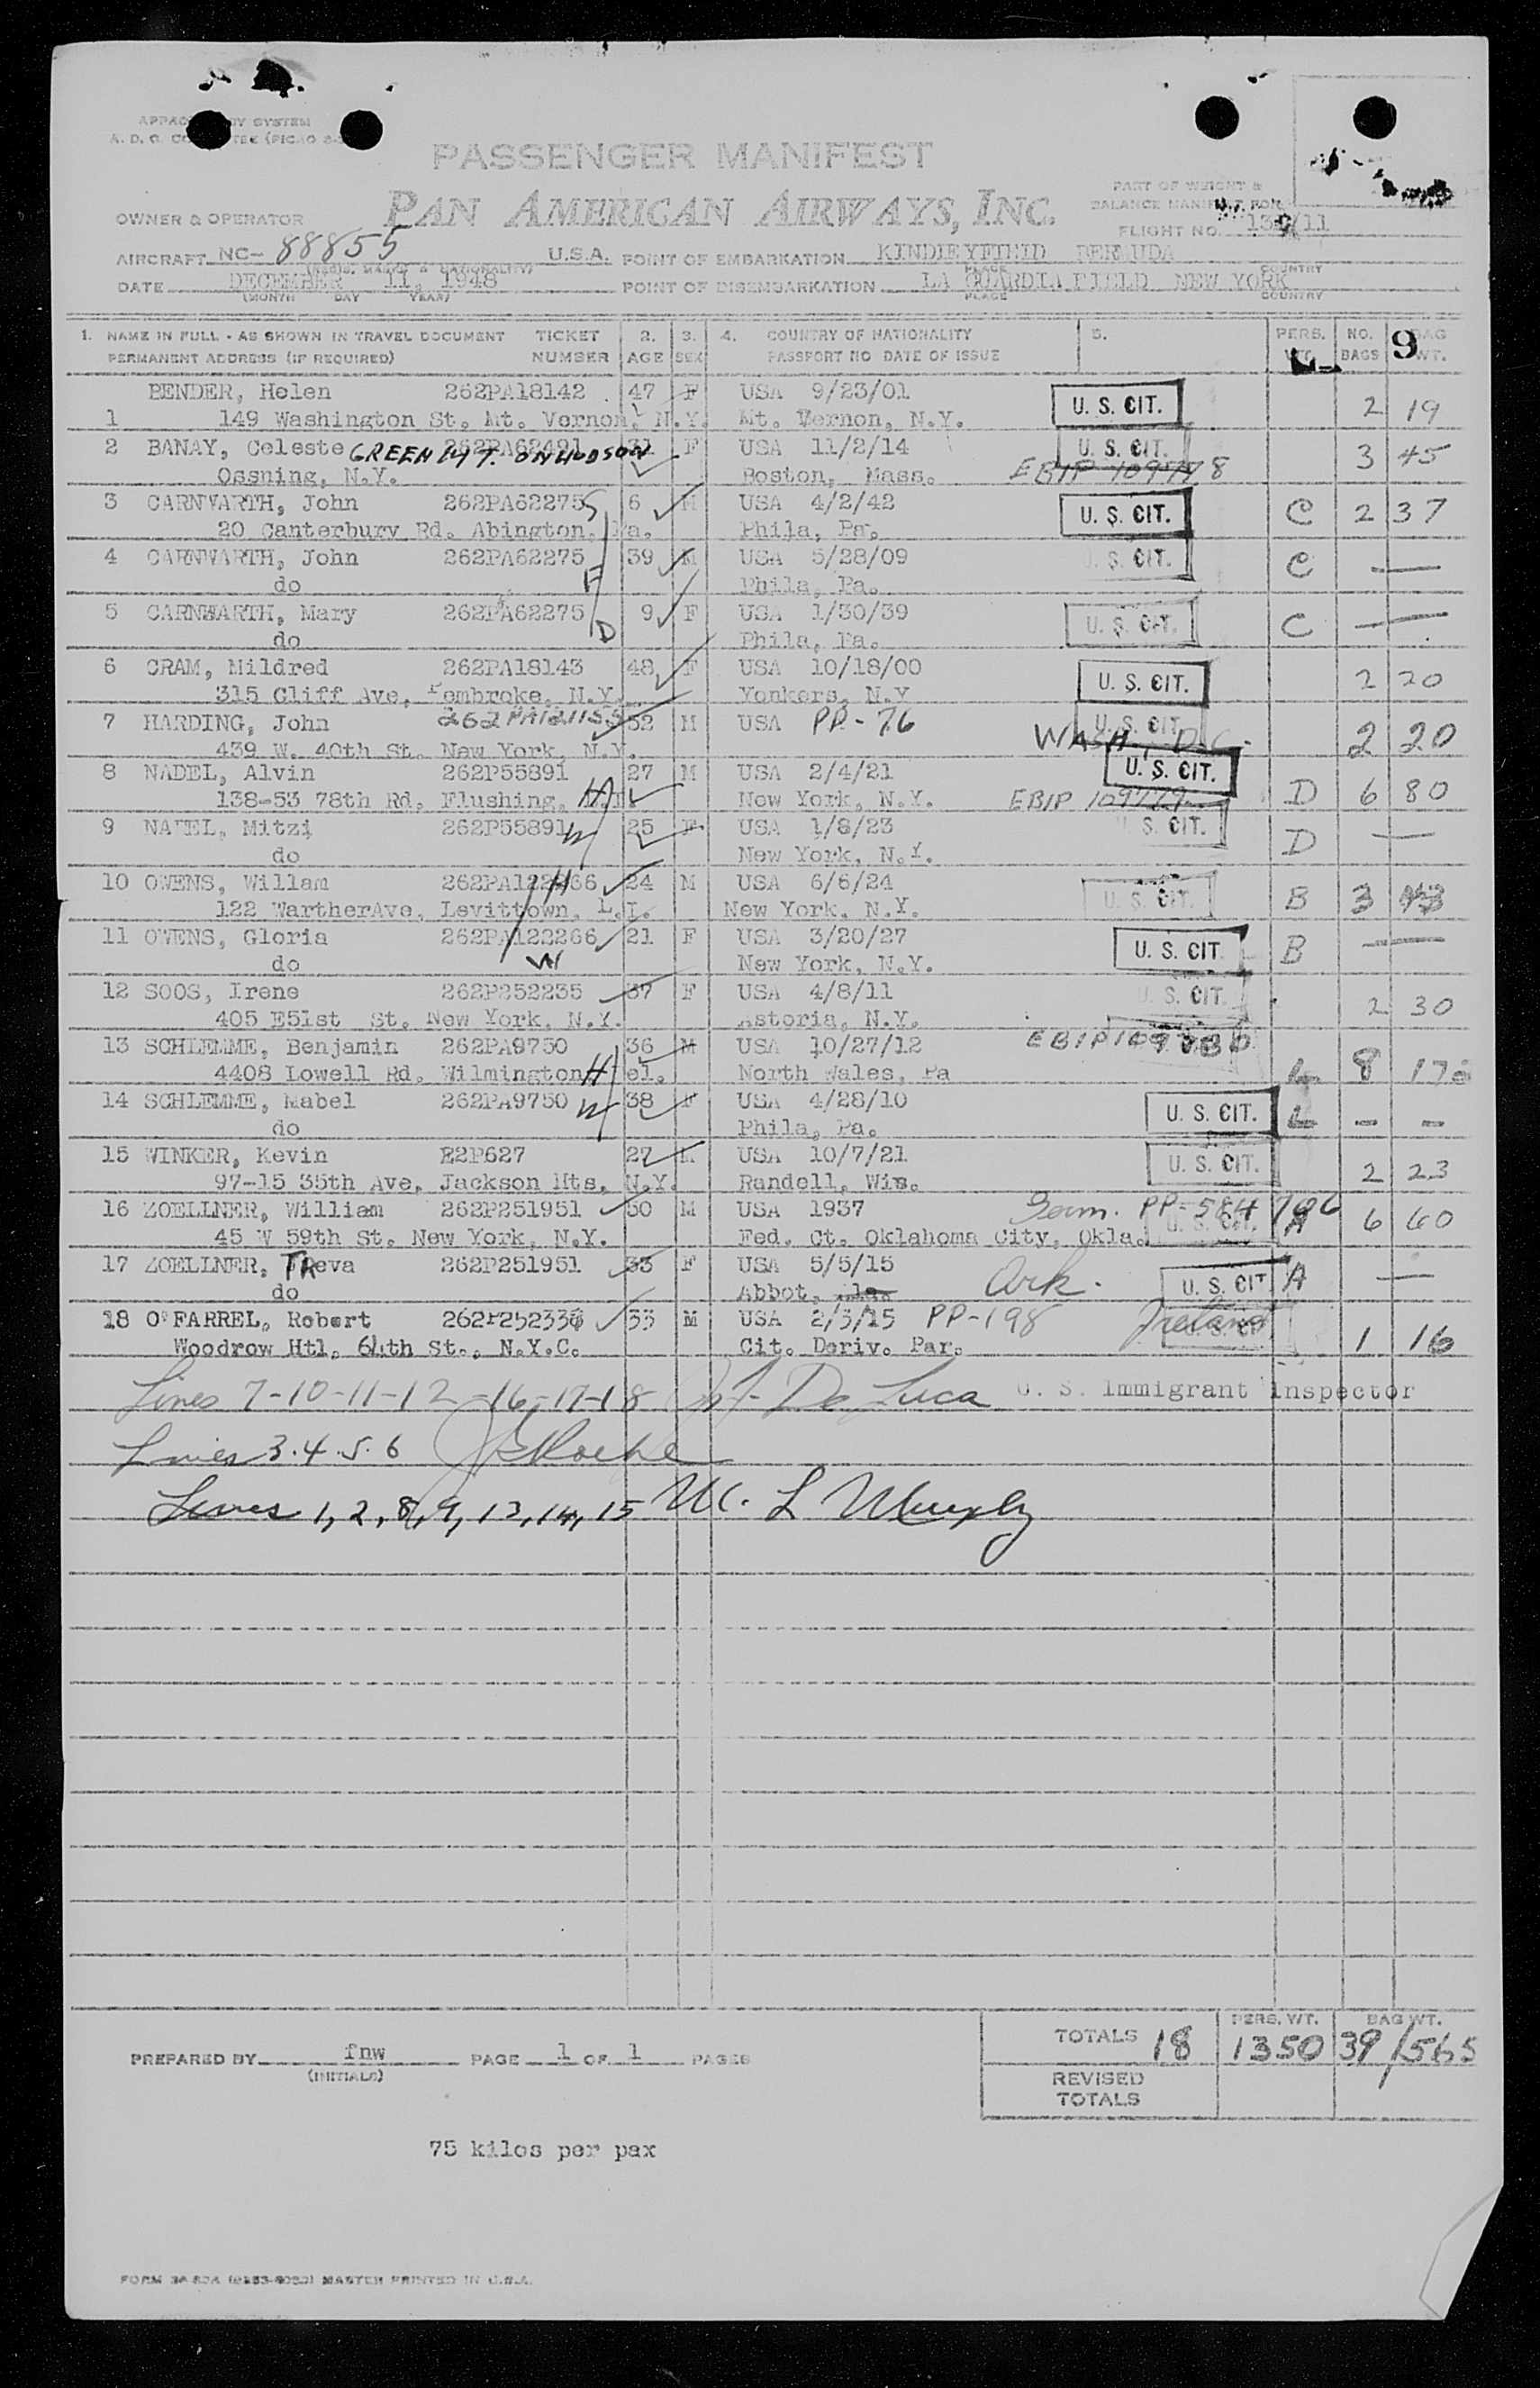 PASSENGER MANIFEST
PAN AMERICAN AIRWAYS, INC.
PART OF WEIGHT &
BALANCE MANIFEST FOR
OWNER & OPERATOR
FLIGHT NO.
AIRCRAFT NC- 88855 U.S.A. POINT OF EMBARKATION KINDLEYFIELD BERMUDA
DATE DECEMBER 11, 1948 POINT OF DISEMBARKATION LA GUARDIA FIELD NEW YORK
(MONTH DAY YEAR) PLACE COUNTRY
1. NAME IN FULL - AS SHOWN IN TRAVEL DOCUMENT TICKET 2. 3. 4. COUNTRY OF NATIONALITY 5. PERS. NO. 9 BAG
PERMANENT ADDRESS (IF REQUIRED) NUMBER AGE SEX PASSPORT NO DATE OF ISSUE WT. BAGS WT.
BENDER, Helen 262PA18142 47 F USA 9/23/01 U. S. CIT.
1 149 Washington St. Mt. Vernon, N.Y. Mt. Vernon, N.Y. 2 19
2 BANAY, Celeste GREEN MT. ON HUDSON 262PA62491 31 F USA 11/2/14 U. S. CIT. 3 45
Ossning, N.Y. Boston, Mass. EBIP 109778
3 CARNWARTH, John 262PA62275 S 6 M USA 4/2/42 U. S. CIT. C 2 37
20 Canterbury Rd. Abington, Pa. Phila, Pa.
4 CARNWARTH, John 262PA62275 39 M USA 5/28/09 U. S. CIT. C —
do F Phila, Pa.
5 CARNWARTH, Mary 262PA62275 9 F USA 1/30/39 U. S. CIT. C —
do D Phila, Pa.
6 CRAM, Mildred 262PA18143 48 F USA 10/18/00 U. S. CIT. 2 20
315 Cliff Ave, Pembroke, N.Y. Yonkers, N.Y
7 HARDING, John 262PA121155 52 M USA PP-76 U. S. CIT. 2 20
439 W. 40th St. New York, N.Y. WASH, D.C.
8 NADEL, Alvin 262P55891 27 M USA 2/4/21 U. S. CIT.
138-53 78th Rd, Flushing, H New York, N.Y. EBIP 109779 D 6 80
9 NADEL, Mitzi 262P55891 W 25 F USA 1/8/23 U. S. CIT. D —
do New York, N.Y.
10 OWENS, Willam 262PA122266 H 24 M USA 6/6/24 U. S. CIT. B 3 43
122 WartherAve, Levittown, L.I. New York, N.Y.
11 OWENS, Gloria 262PA122266 21 F USA 3/20/27 U. S. CIT B —
do W New York, N.Y.
12 SOOS, Irene 262P252235 37 F USA 4/8/11 U. S. CIT. 2 30
405 E51st St. New York, N.Y. Astoria, N.Y.
13 SCHLEMME, Benjamin 262PA9750 36 M USA 10/27/12 EBIP109780
4408 Lowell Rd. Wilmington H Del. North Wales, Pa L 8 172
14 SCHLEMME, Mabel 262PA9750 W 38 F USA 4/28/10 U. S. CIT. L - -
do Phila, Pa.
15 WINKER, Kevin R2P627 27 M USA 10/7/21 U. S. CIT.
97-15 35th Ave, Jackson Hts, N.Y. Randell, Wis. 2 23
16 ZOELLNER, William 262P251951 50 M USA 1937 Germ. PP-584 706 A 6 60
45 W 59th St. New York, N.Y. Fed. Ct. Oklahoma City, Okla.
17 ZOELLNER, TReva 262P251951 33 F USA 5/5/15 Ark. U. S. CIT. A —
do Abbot,
18 O'FARREL, Robert 262P252336 33 M USA 2/3/15 PP-198 Ireland
Woodrow Htl, 64th St., N.Y.C. Cit. Deriv. Par. 1 16
Lines 7-10-11-12-16-17-18 De Luca U. S. Immigrant Inspector
Lines 3.4.5.6 Roche
Lines 1, 2, 8, 9, 13, 14, 15 L Murphy
TOTALS 18 PERS. WT. 1350 BAG WT. 39/565
PREPARED BY fnw PAGE 1 OF 1 PAGES
(INITIALS) REVISED
TOTALS
75 kilos per pax